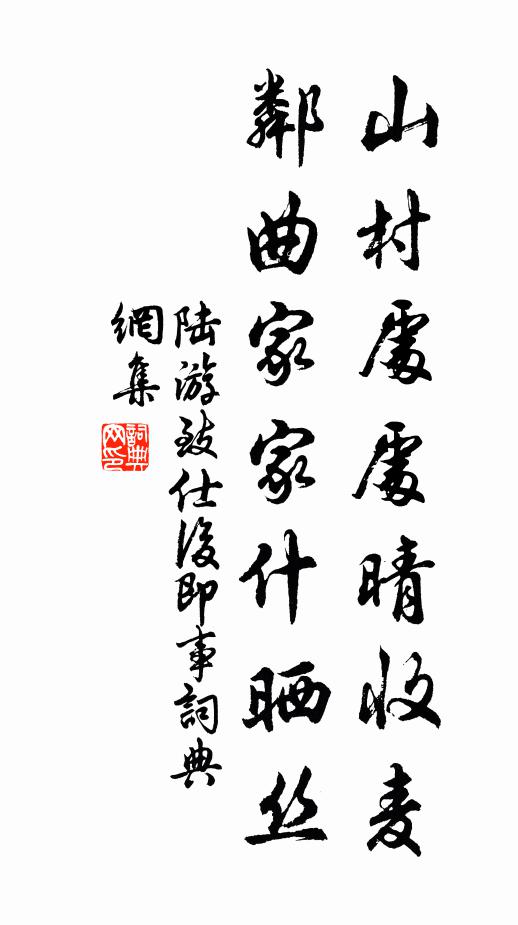 山村處處晴收麦
鄰曲家家什晒丝
陆游致仕後即事詞典
網集
詞典网印